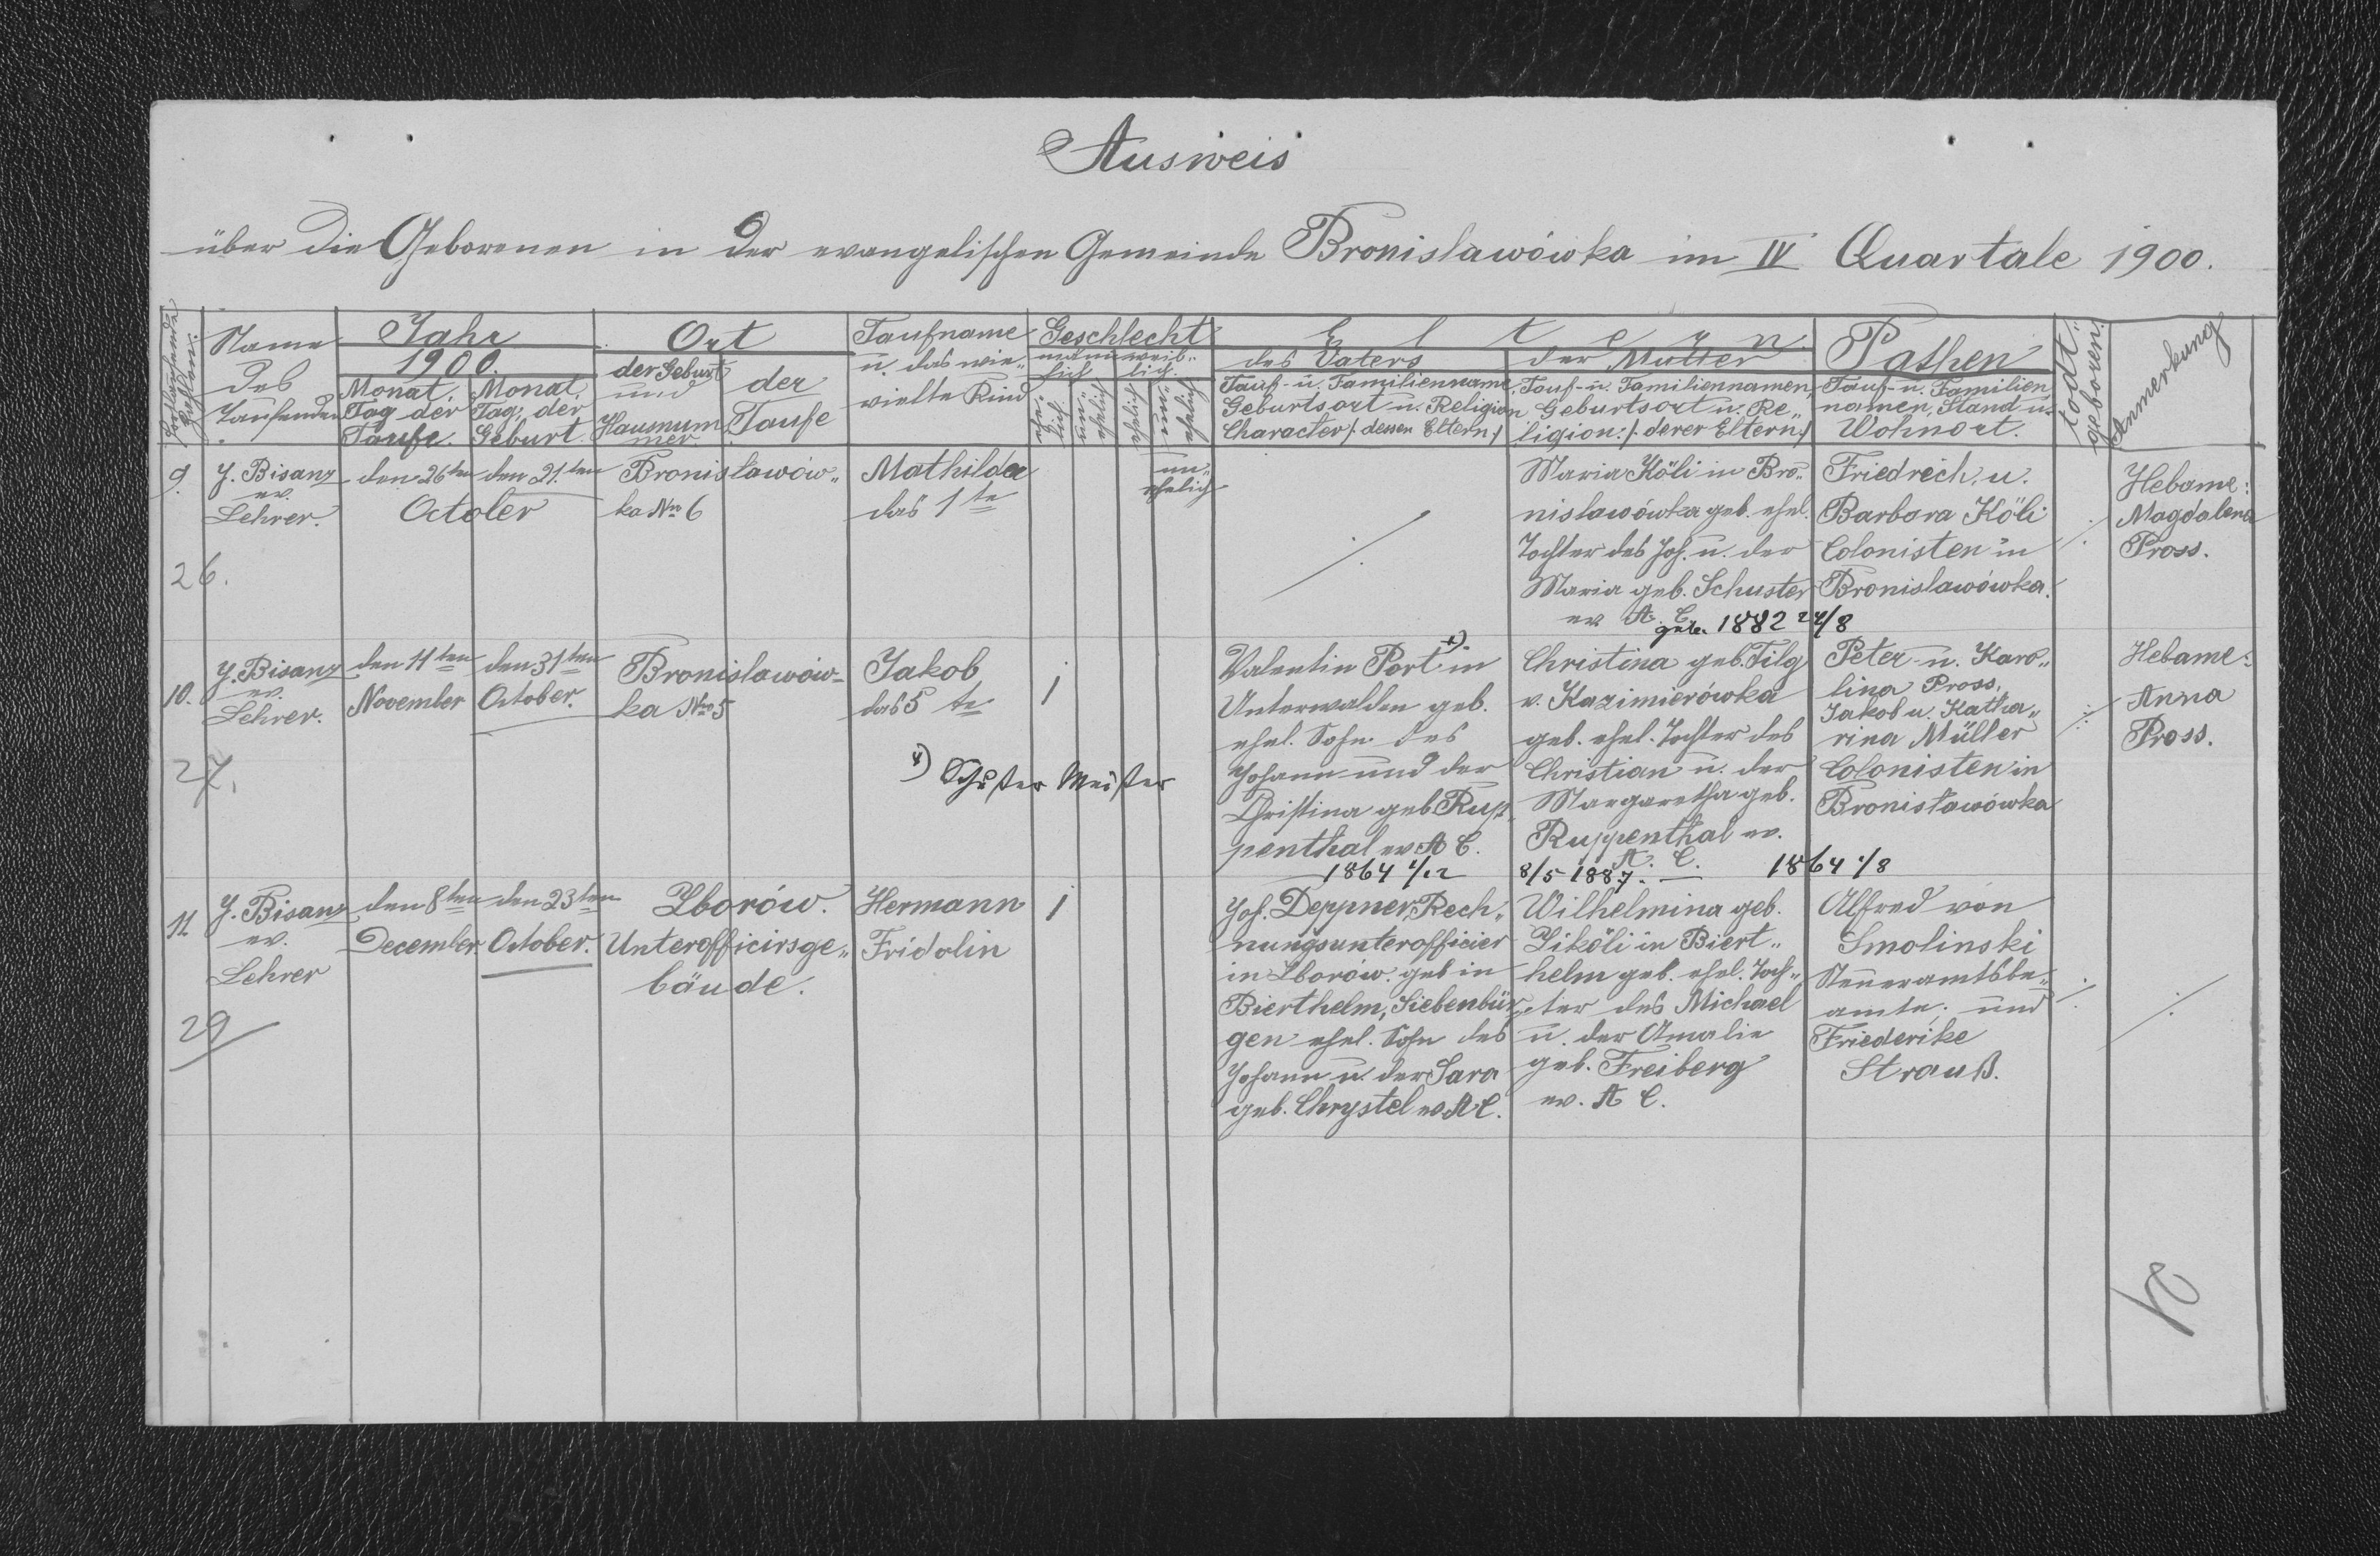 Ausweis
über die Geborenen in der evangelischen Gemeinde Bronisławówka im IV Quartale 1900.
Fortlaufende Zahlen.
Name
des
Taufenden
Jahr
1900.
Monat,
Tag der
Taufe.
Monat,
Tag, der
Geburt.
Ort
der Geburt
und
Hausnum
mer
der
Taufe
Taufname
u. das wie„
vielte Kind
Geschlecht
männ„
lich
weib„
lich.
ehe„
lich
un„
ehelich
ehelich
un„
ehelich
Eltern
des Vaters
Tauf- u. Familienname,
Geburtsort u. Religion
Character /. dessen Eltern./
der Mutter
Tauf- u. Familiennamen,
Geburtsort u. Re„
ligion: /. derer Eltern./
Pathen
Tauf- u. Familien
namen, Stand u.
Wohnort.
todt„
geboren.
Anmerkung
9.
J. Bisanz
ev.
Lehrer.
den 26ten
den 21.ten
October
Bronisławów„
ka Nro 6
Mathilda
das 1te
un„
ehelich
Maria Köli in Bro„
nisławówka geb. ehel.
Tochter des Joh. u. der
Maria geb. Schuster
ev A. C.
geb. 1882 24/8
Friedrich, u.
Barbara Köli
Colonisten in
Bronislawówka.
Hebame:
Magdalena
Pross.
26.
10.
J. Bisanz
ev.
Lehrer.
den 11ten
November
den 31ten
October.
Bronisławów-
ka Nro 5
Jakob
das 5te
1
Valentin Port x) in
Unterwalden geb.
ehel. Sohn des
Johann und der
Christina geb Rup„
penthal ev A C.
1864 1/12
Christina geb. Filg
v. Kazimierówka
geb. ehel. Tochter des
Christian u. der
Margaretha geb.
Ruppenthal ev.
A. C.
8/5 1887. — 1864 1/8
Peter u. Karo„
lina Pross,
Jakob u. Katha„
rina Müller
Colonisten in
Bronisławówka
Hebame:
Anna
Pross.
27.
x) Schuster Meister
11
J. Bisanz
ev.
Lehrer
den 8ten
December.
den 23ten
October.
Zborów.
Unterofficirsge„
bäude.
Hermann
Fridolin
1
Joh. Deppner, Rech„
nungsunterofficier
in Zborów. geb in
Bierthelm, Siebenbür„
gen ehel. Sohn des
Johann u. der Sara
geb. Chrystel ev A C.
Wilhelmina geb.
Ziköli in Biert„
helm geb. ehel. Toch„
ter des Michael
u. der Amalie
geb. Freiberg
ev. A C.
Alfred von
Smolinski
Steueramtsbe„
amte; und
Friederike
Strauß.
29